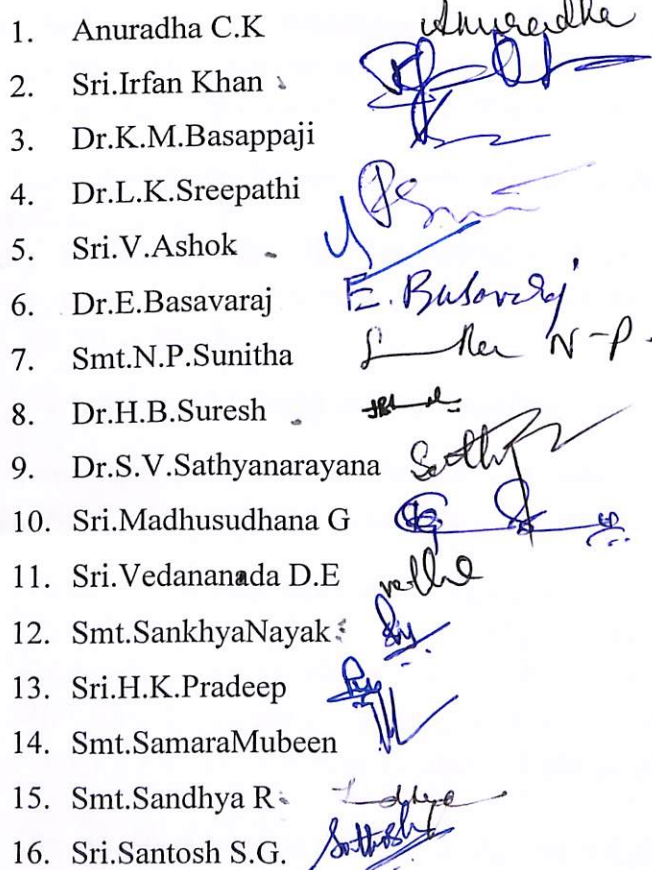 1. Anuradha C.K Anuradha
2. Sri.Irfan Khan
3. Dr.K.M.Basappaji
4. Dr.L.K.Sreepathi
5. Sri.V.Ashok
6. Dr.E.Basavaraj E. Basavaraj
7. Smt.N.P.Sunitha N-P.
8. Dr.H.B.Suresh
9. Dr.S.V.Sathyanarayana
10. Sri.Madhusudhana G
11. Sri.Vedananada D.E
12. Smt.SankhyaNayak
13. Sri.H.K.Pradeep
14. Smt.SamaraMubeen
15. Smt.Sandhya R
16. Sri.Santosh S.G.